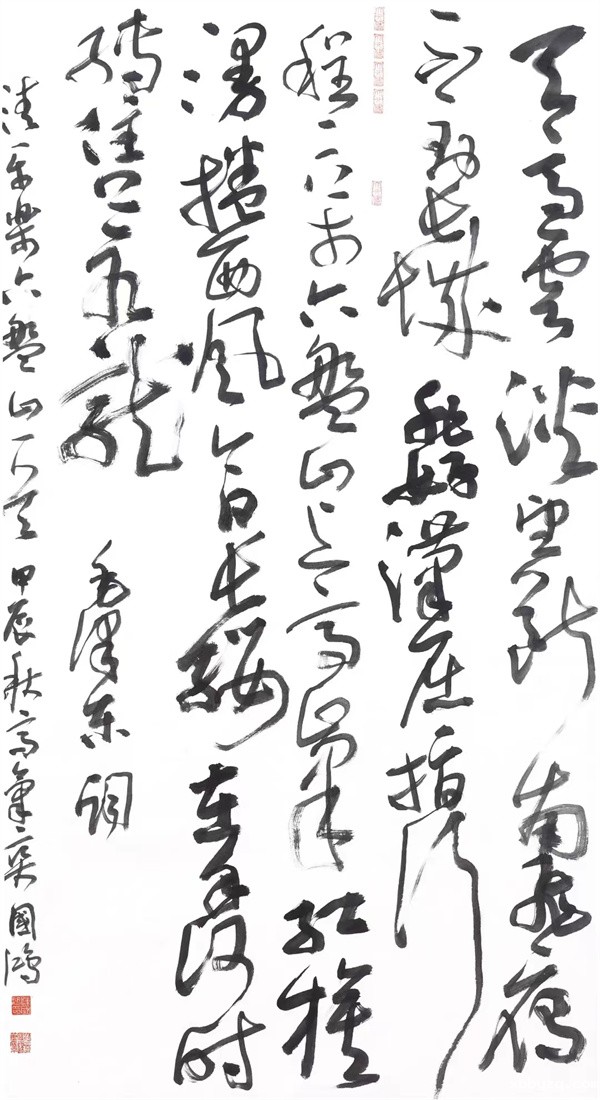 天高雲淡望斷南飛雁
不到長城非好漢屈指行
程二万六盤山上高峰红旗
漫捲西風今日長纓在手何时
縛住蒼龍 毛澤東詞
清平樂六盤山 甲辰秋高氣爽國鴻